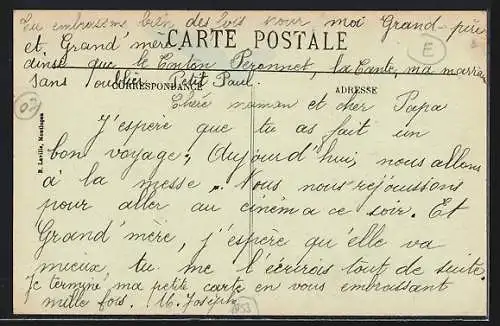 Tu embrasseras bien des fois pour moi Grand-père
et Grand'mère
CARTE POSTALE
E
ainsi que le Tonton Peronnet, la Tante, ma marraine
sans oublier Petit Paul.
CORRESPONDANCE
ADRESSE
02
Chère maman et cher Papa
J'espère que tu as fait un
bon voyage. Aujourd'hui, nous allons
à la messe. Nous nous réjouissons
pour aller au cinéma ce soir. Et
Grand'mère, j'espère qu'elle va
mieux, tu me l'écrirois tout de suite.
Je termine ma petite carte en vous embrassant
mille fois. M. Joseph
1953